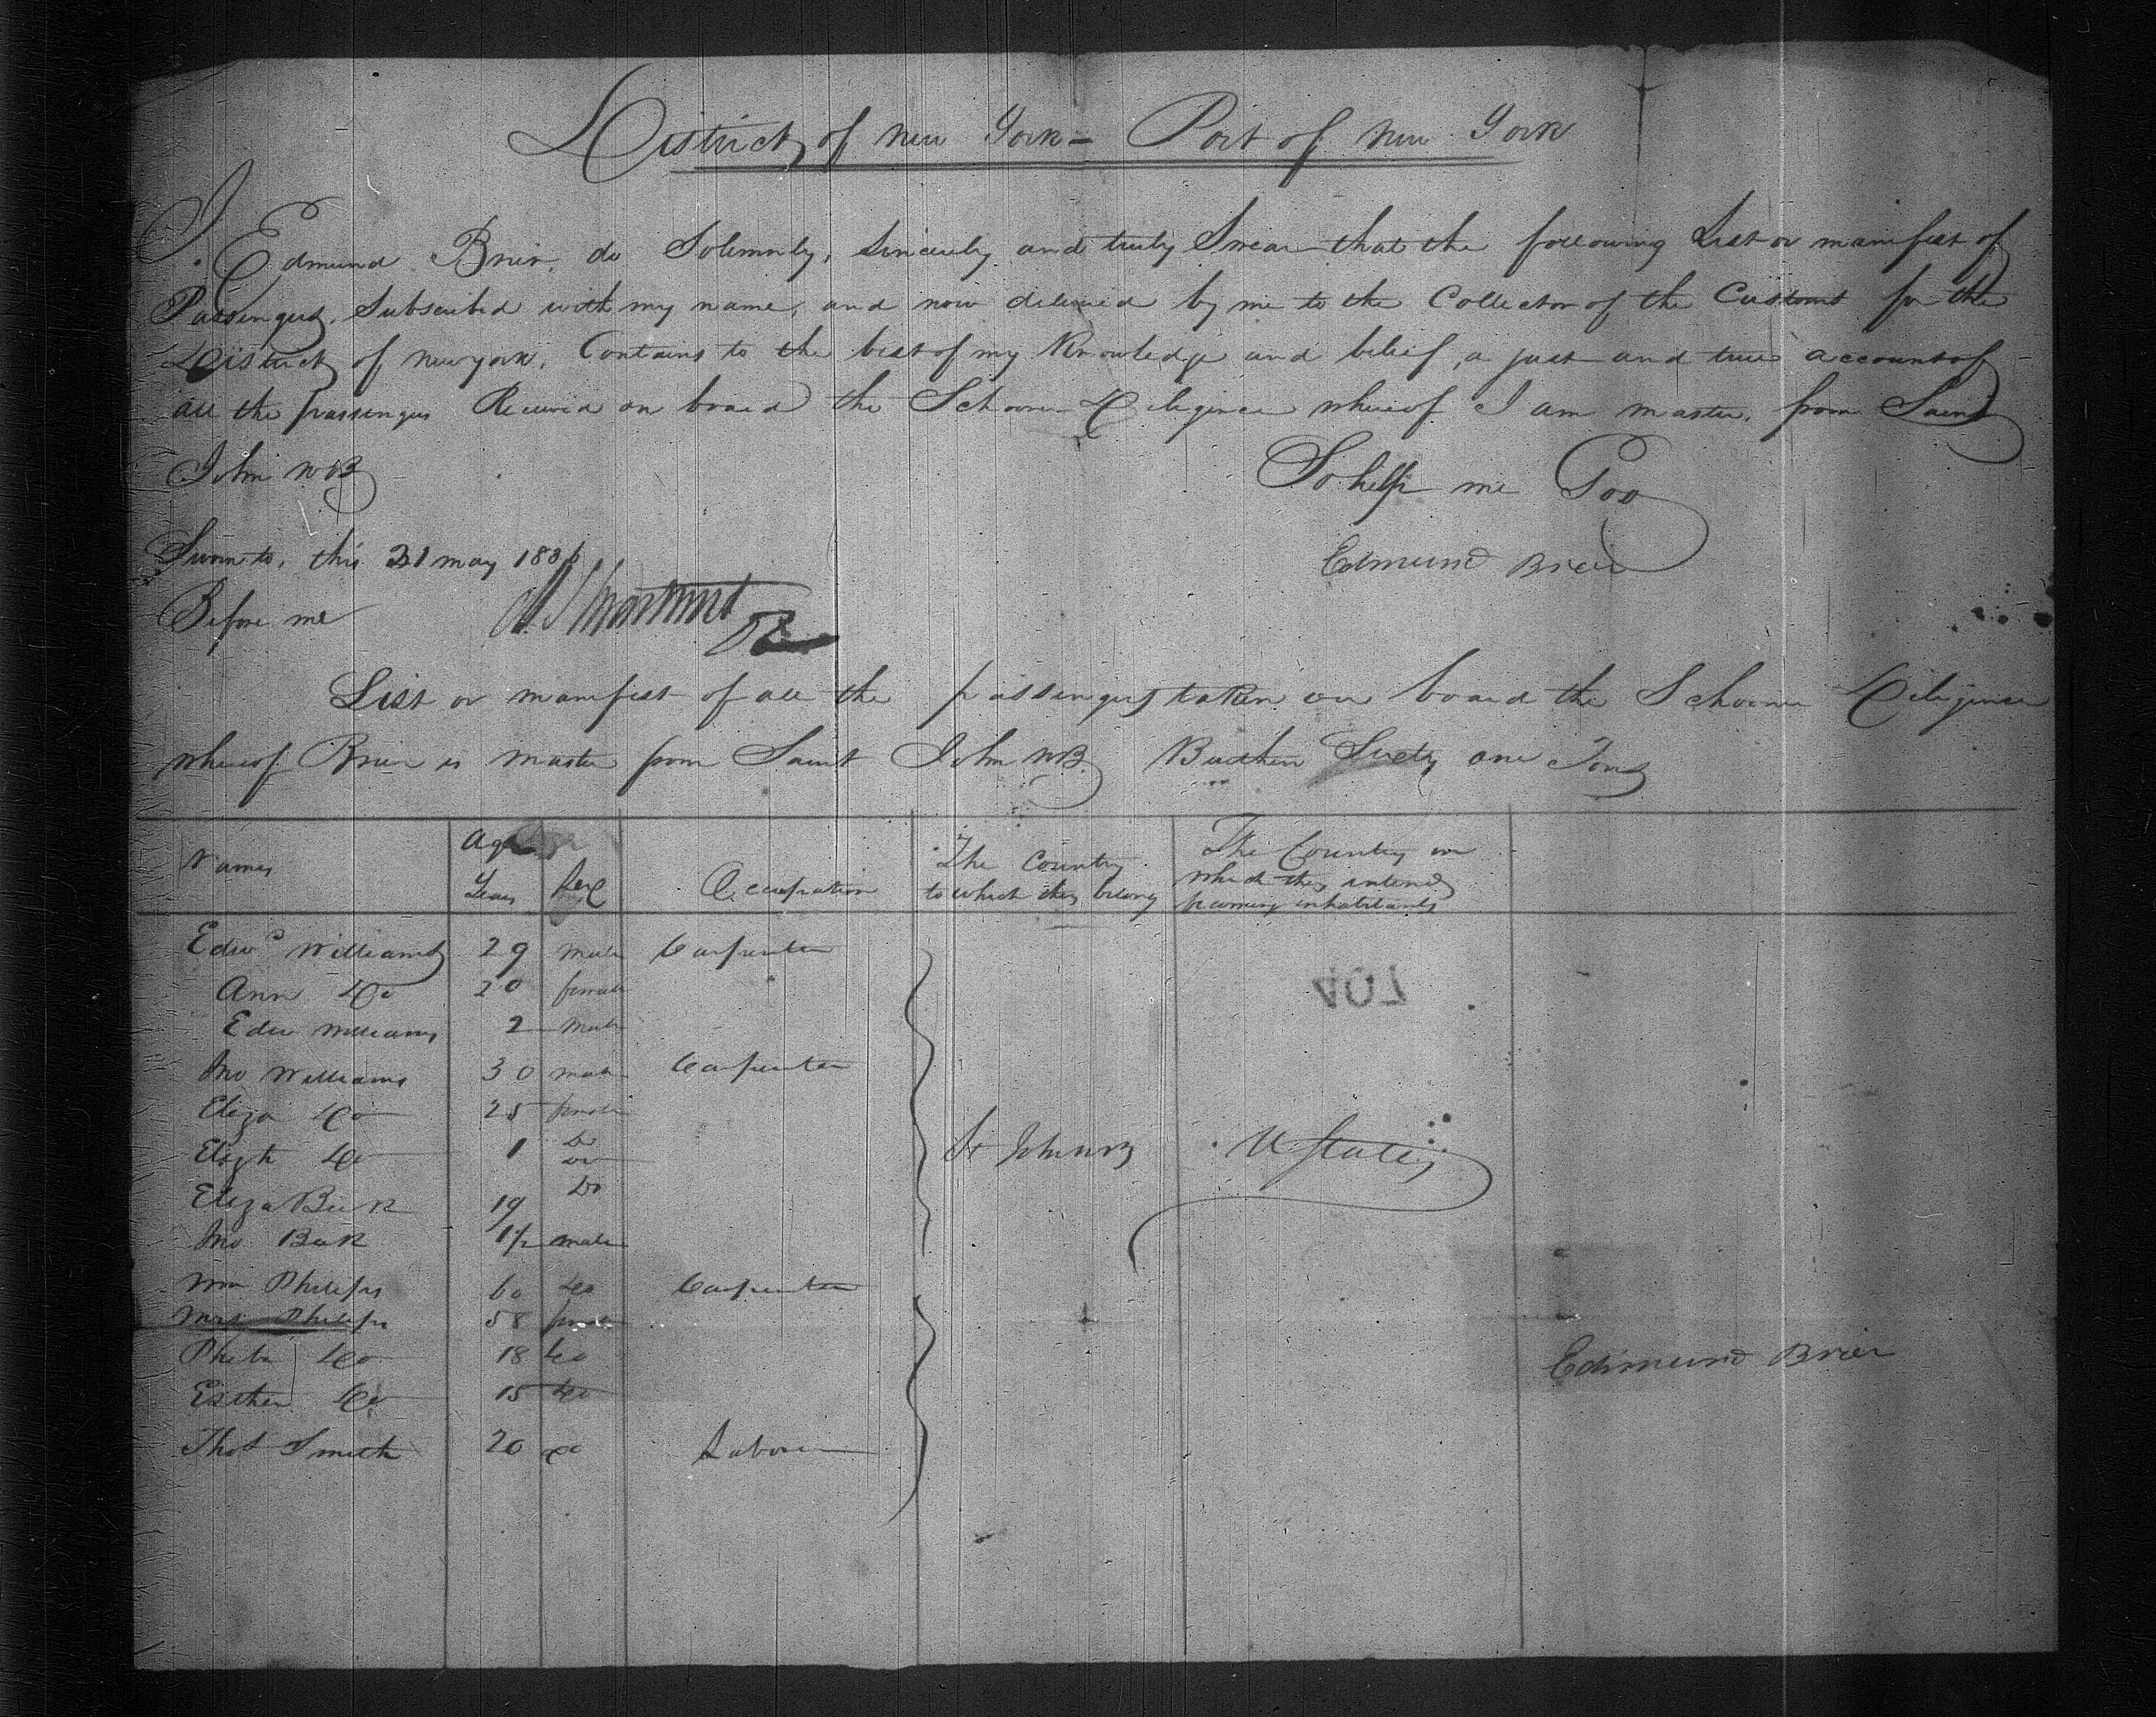 District of New York = Port of New York
I. Edmund Brier, do Solemnly, Sincerely and truly Swear that the following List or manifest of
Passengers, Subscribed with my name, and now delivered by me to the Collector of the Customs for the
District of New york, Contains to the best of my Knowledge and belief, a just and true account of
all the passengers Received on board the Schooner Diligence whereof I am master, from Saint
John NB
So help me God
Sworn to, this 21 may 183
Edmund Brier
Before me
List or manifest of all the passengers taken on board the Schooner Diligence
whereof Brier is master from Saint John NB. Burthen Sixty one Tons
Names Age Years Sex Occupation The Country to which they belong The Country in which they intend becoming inhabitants
Edwd Williams 29 male Carpenter
Ann Do 20 female
707
Edw Williams 2 male
Jno Williams 30 male Carpenter
Eliza Do 25 female
Elizth Do 1 Do
St John NB U States
Eliza Beek 19 Do
Jno Beek 1 1/2 male
Wm Philips 60 do Carpenter
Mrs Philips 58 female
Phebe Do 18 do
Edmund Brier
Esther Do 15 do
Thos Smith 20 do Laborer